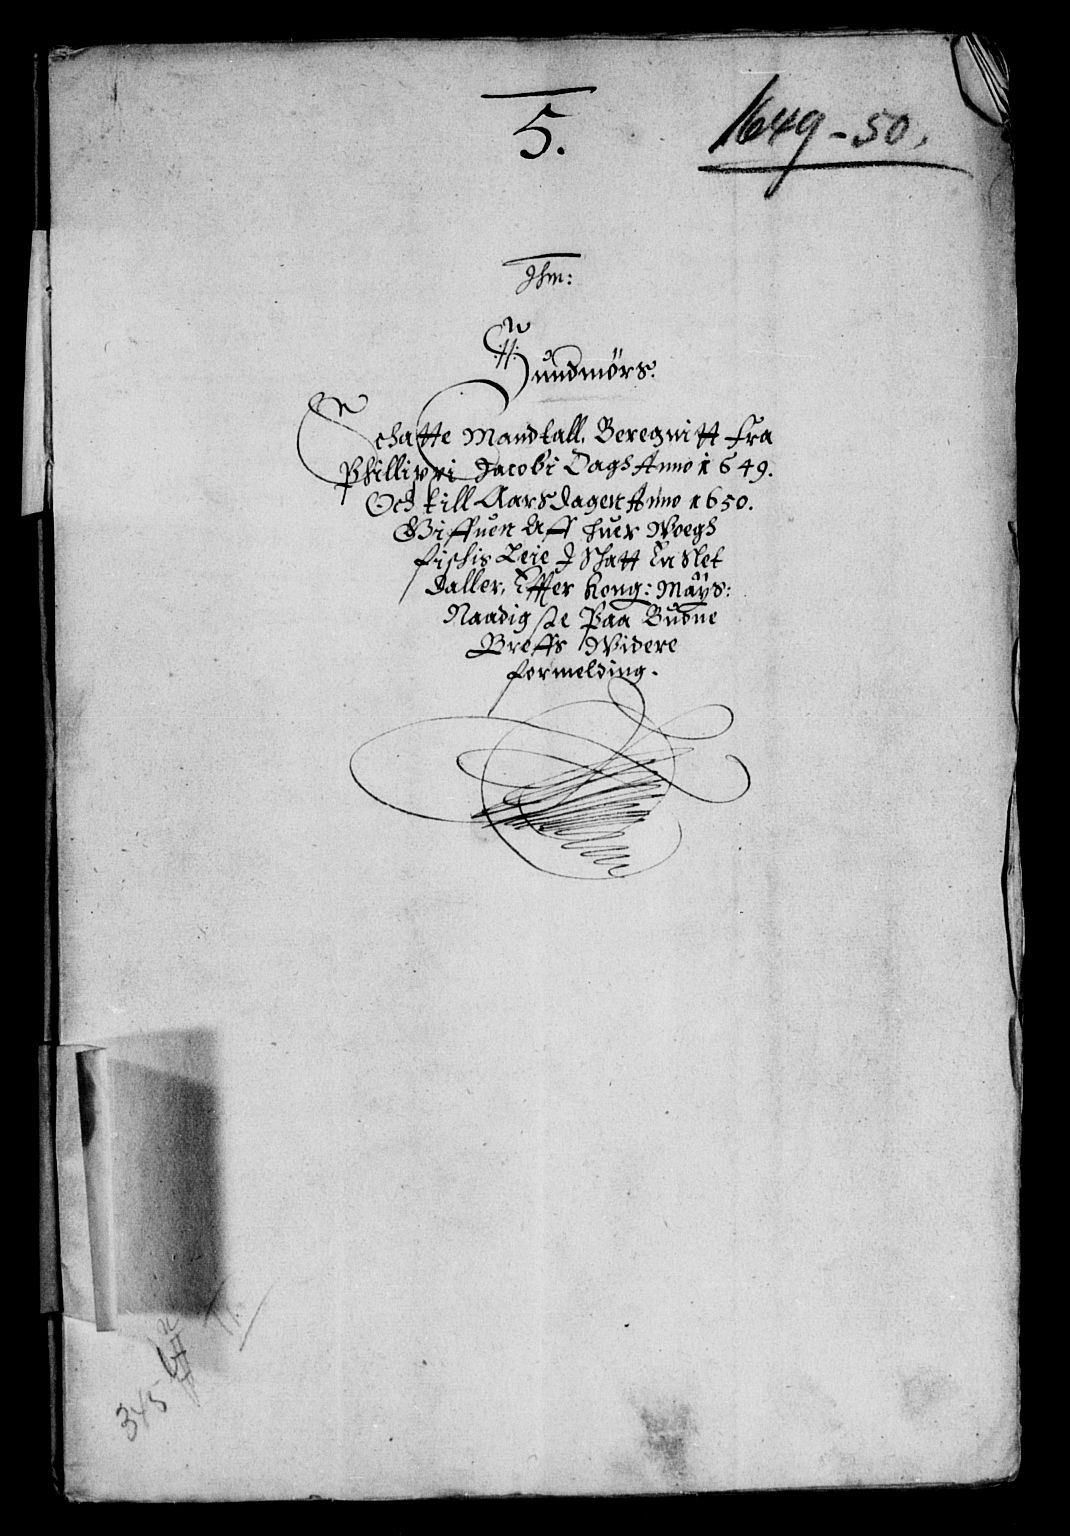 5.
1649-50.
Jhm:
Sundmörs.
Schatte Mandtall, Beregnitt fra
Phillippi Jacobi Dagh Anno 1649.
Och till Aarsdagen Anno 1650.
Giffuen Aff huer Woegh
fischis Leie J Schatt En Slet
Daller, Effter Kong: Mäys:
Naadigste Paa Budne
Breffs Widere
formelding.
345